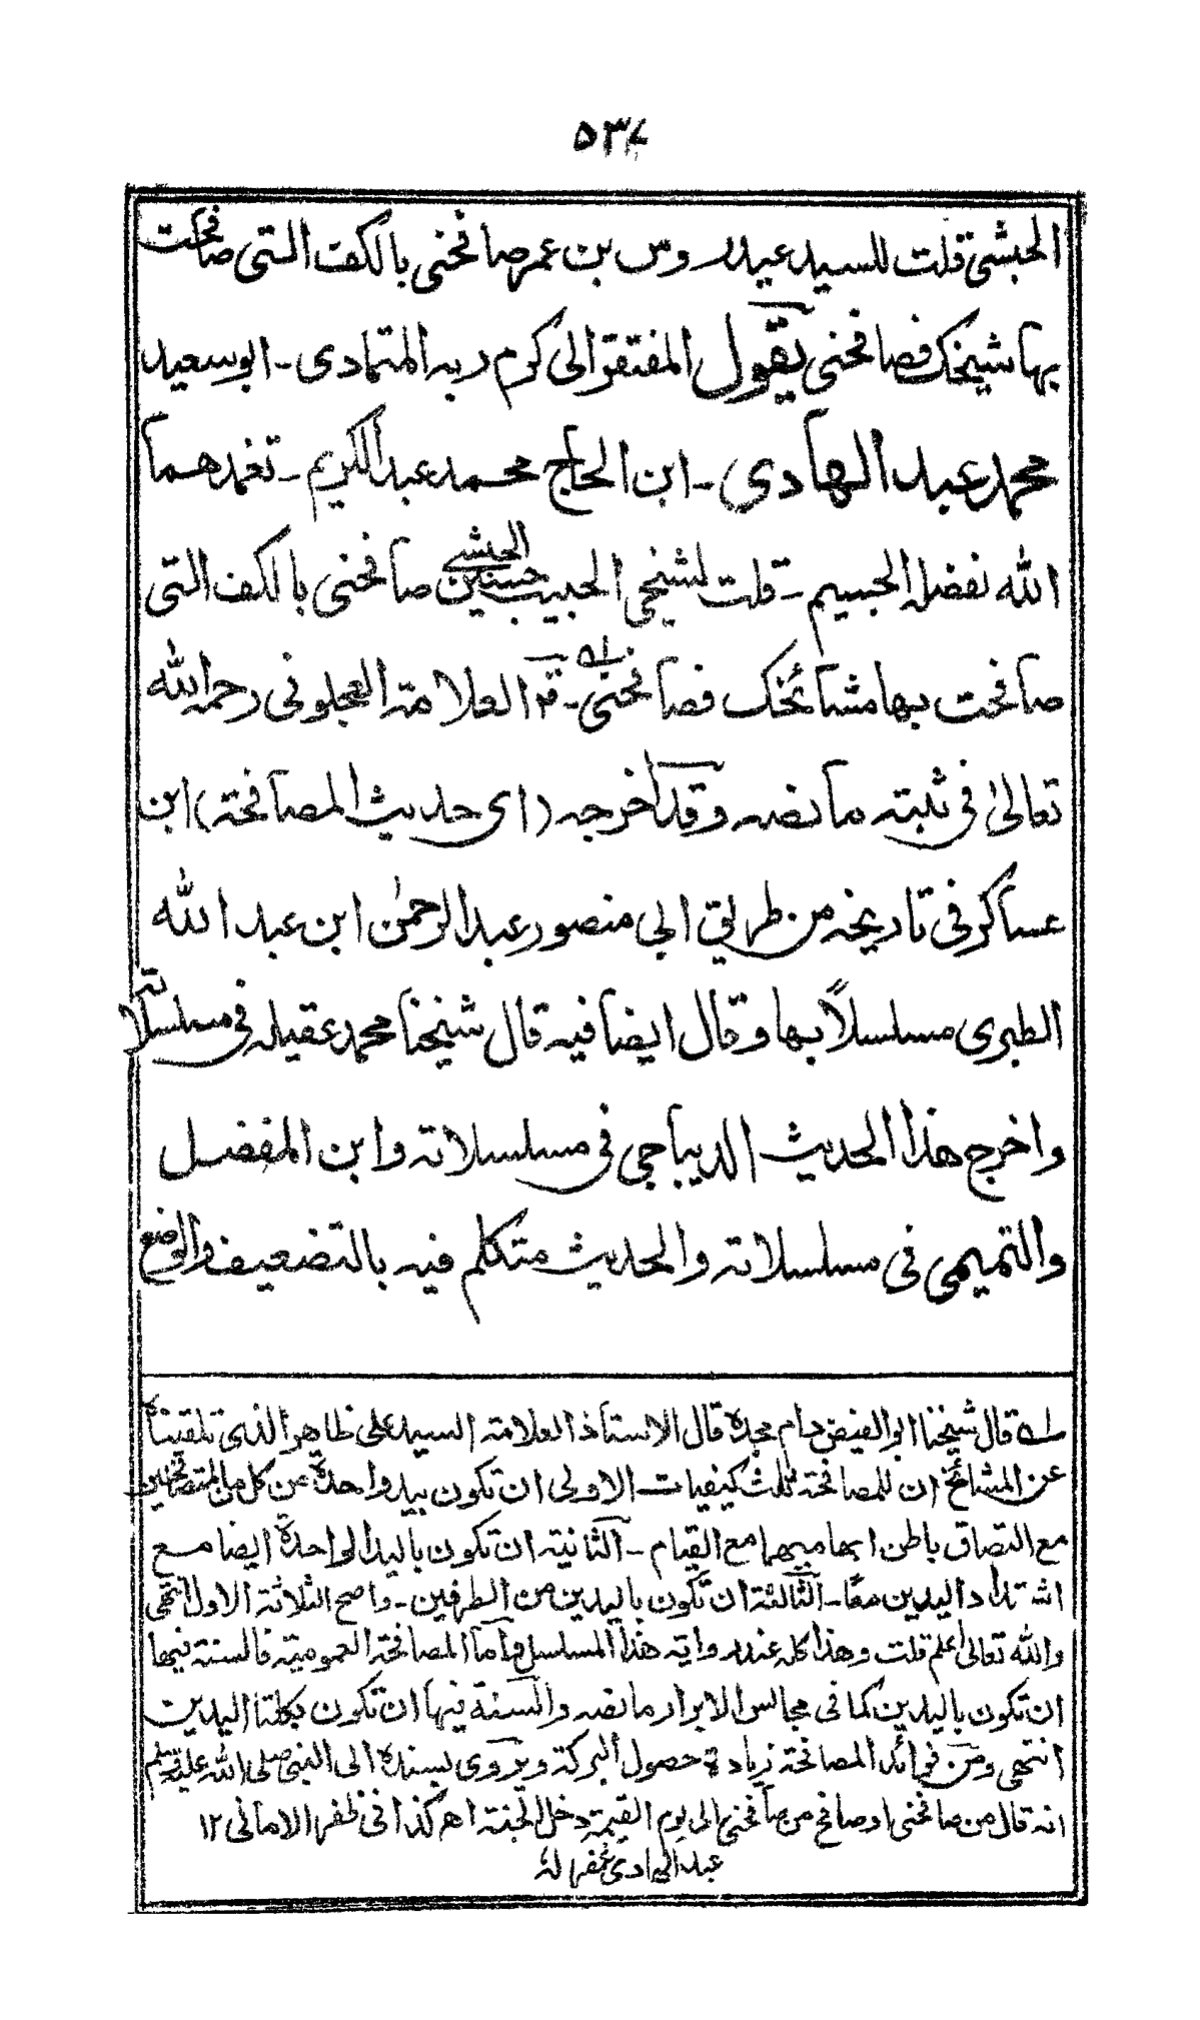 ۵۳۷
الحبشي قلت للسيد عيدروس بن عمر صافحنى بالكف التى صافحت
بها شيخك فصافحنى يقول المفتقر الى كرم ربه المتمادى - ابو سعيد
محمد عبد الهادى - ابن الحاج محمد عبد الكريم - تغمدهما
الله بفضله الجسيم - قلت لشيخى الحبيب حسين الحبشى صافحنى بالكف التى
صافحت بها مشائخك فصافحنى له - قال العلامة العجلونى رحمه الله
تعالىٰ فى ثبته ما نصه وقد اخرجه (اى حديث المصافحة) ابن
عساكر فى تاريخه من طريق ابي منصور عبد الرحمٰن ابن عبد الله
الطبرى مسلسلاً بها وقال ايضا فيه قال شيخنا محمد عقيله فى مسلسلاته
واخرج هذا الحديث الديباجى فى مسلسلاته وابن المفضل
والتميمى فى مسلسلاته والحديث متكلم فيه بالتضعيف والوضع
له قال شيخنا ابو الفيض دام مجده قال الاستاذ العلامة السيد على ظاهر الذى تلقيناه
عن المشائخ ان للمصافحة ثلث كيفيات الاولى ان تكون بيد واحدة من كل من المتصافحين
مع التصاق باطن ابهاميهما مع القيام - الثانية ان تكون باليد الواحدة ايضا مع
اشتداد اليدين معًا - الثالثة ان تكون باليدين من الطرفين - واصح الثلاثة الاول انتهى
والله تعالى اعلم قلت وهذا كله عند رواية هذا المسلسل واما المصافحة العمومية فالسنة فيها
ان تكون باليدين كما فى مجالس الابرار ما نصه والسنة فيها ان تكون بكلتا اليدين
انتهى ومن فوائد المصافحة زيادة حصول البركة ويروى بسنده الى النبى صلى الله عليه وسلم
انه قال من صافحنى او صافح من صافحنى الى يوم القيمة دخل الجنة اھ كذا فى ظفر الامانى ١٢
عبد الهادى غفر لهٗ